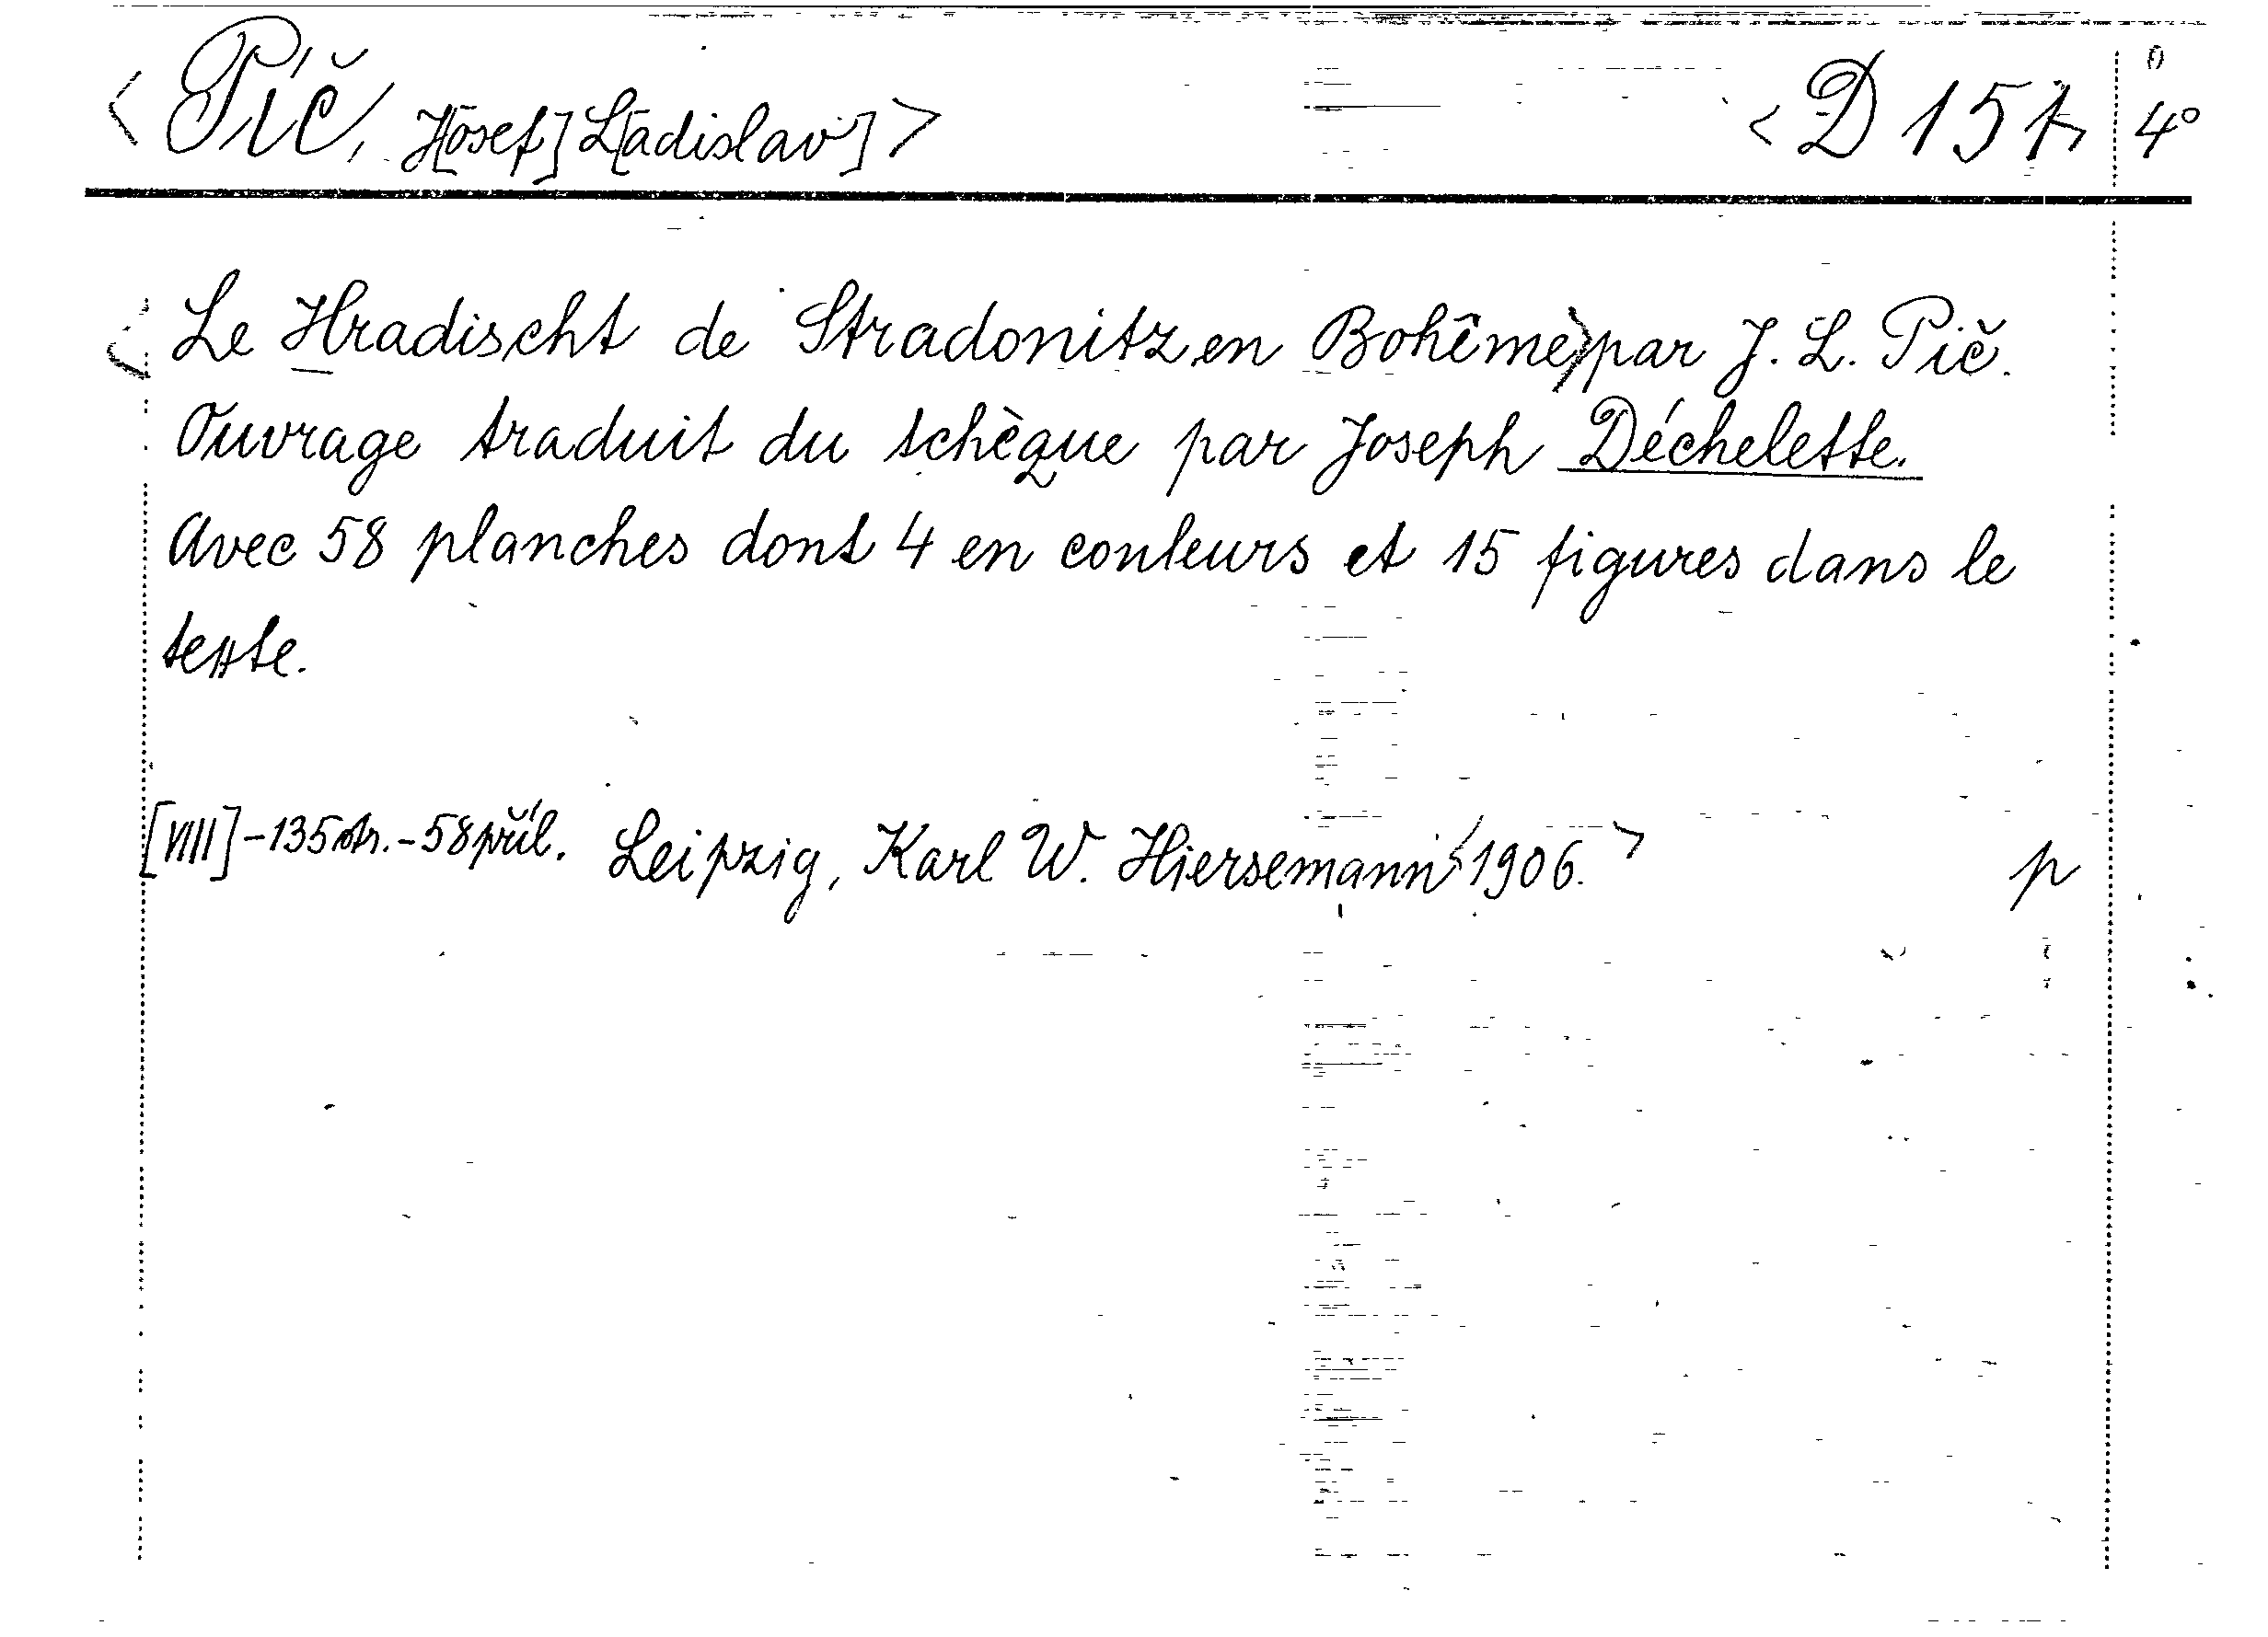 <Píč, J[osef] L[adislav]> <D 15> 4°
<Le Hradischt de Stradonitz en Bohême> par J. L. Píč.
Ouvrage traduit du tchèque par Joseph Déchelette.
Avec 58 planches dont 4 en couleurs et 15 figures dans le
texte.
[VIII]-135 str.-58 příl. Leipzig, Karl W. Hiersemann <1906.> p